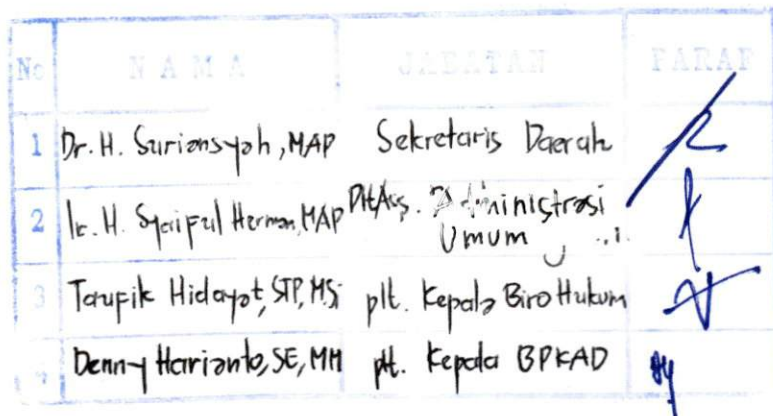 No NAMA JABATAN PARAF
1 Dr. H. Suriansyah, MAP Sekretaris Daerah
2 Ir. H. Syaiful Herman, MAP Plt. Ass. Administrasi
Umum
3 Taufik Hidayat, STP, M.Si plt. Kepala Biro Hukum
Denny Harianto, SE, MM plt. Kepala BPKAD